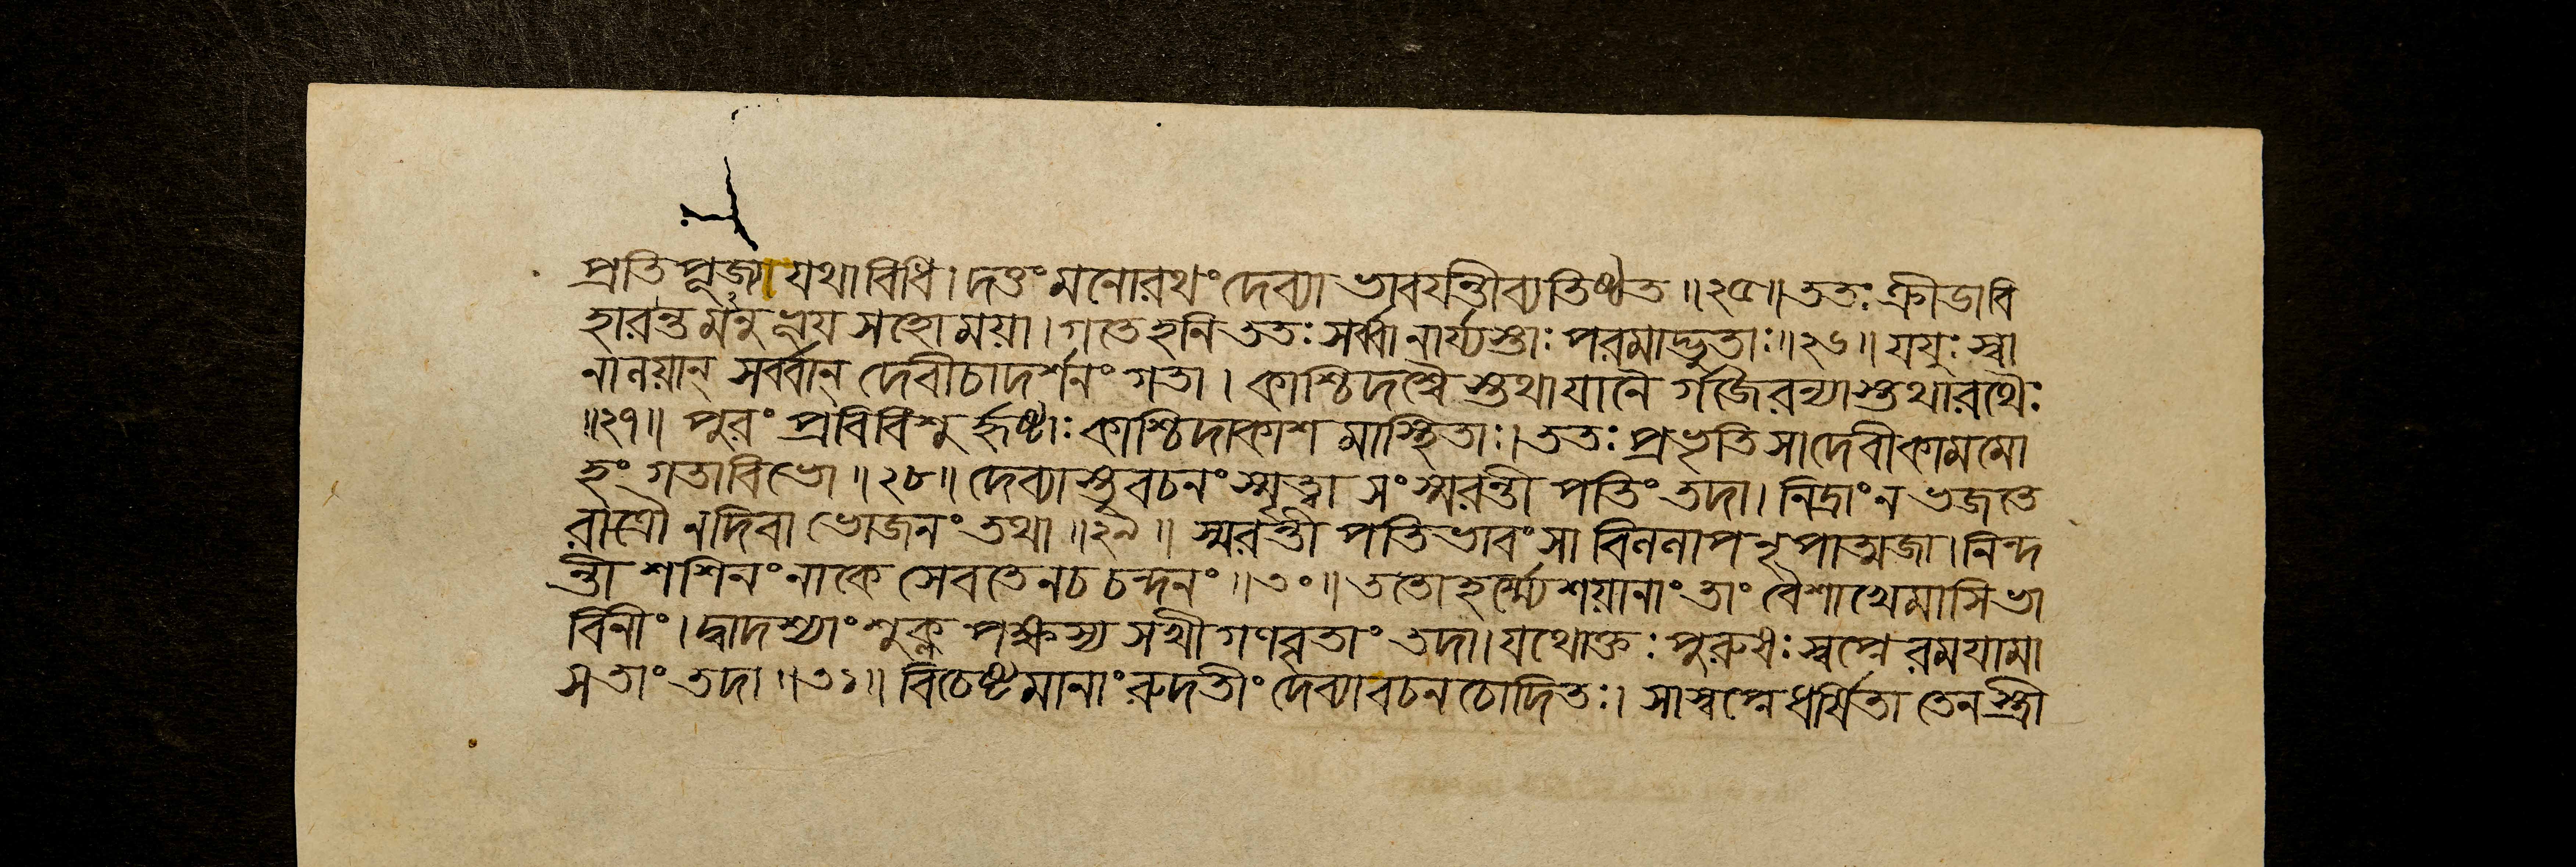 প্রতিপূজ্যাযথাবিধি। দত্তং মনোরথং দেব্যা ভাবযন্তীব্যতিষ্ঠত ॥২৫॥ ততঃ ক্রীডাবি
হারন্তমনুভূয সহোময়া। গতেহনি ততঃ সর্ব্বানার্য্যস্তাঃ পরমাদ্ভুতাঃ॥২৬॥ যযুঃ স্বা
নানয়ান্ সর্ব্বান্ দেবীচাদর্শনং গতা। কাশ্চিদশ্বৈস্তথাযানৈ র্গজৈরন্যাস্তথারথৈঃ
॥২৭॥ পুরং প্রবিবিশু র্হৃষ্টাঃ কাশ্চিদাকাশ মাস্থিতাঃ। ততঃ প্রভৃতি সাদেবীকামমো
হং গতাবিভো ॥২৮॥ দেব্যাস্তুবচনং স্মৃত্বা সংস্মরন্তী পতিং তদা। নিদ্রাং ন ভজতে
রাত্রৌ নদিবা ভোজনং তথা ॥২৯॥ স্মরন্তী পতিভাবংসা বিননাপনৃপাত্মজা। নিন্দ
ন্তী শশিনং নাকে সেবতেনচ চন্দনং ॥৩০॥ ততোহর্ম্ম্যেশয়ানাং তাং বৈশাখেমাসিভা
বিনীং। দ্বাদশ্যাং শুক্ল পক্ষস্য সখীগণবৃতাং তদা। যথোক্তঃ পুরুষঃ স্বপ্নে রমযামা
সতাং তদা ॥৩১॥ বিচেষ্টমানাং রুদতীং দেব্যাবচনচোদিতঃ। সাস্বপ্নেধর্ষিতা তেনস্ত্রী